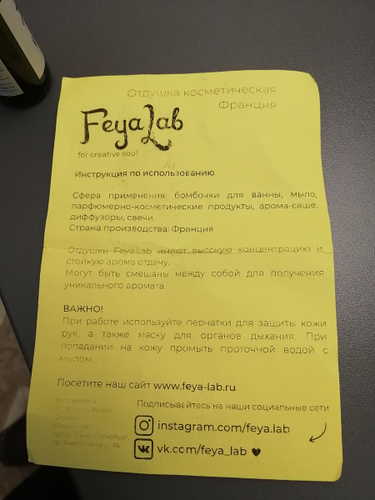 Отдушка косметическая
Франция
FeyaLab
for creative soul
Инструкция по использованию
Сфера применения: бомбочки для ванны, мыло,
парфюмерно-косметические продукты, арома-саше,
диффузоры, свечи.
Страна производства: Франция
Отдушки Feya Lab имеют высокую концентрацию и
стойкую арома отдачу.
Могут быть смешаны между собой для получения
уникального аромата.
ВАЖНО!
При работе используйте перчатки для защиты кожи
рук, а также маску для органов дыхания. При
попадании на кожу промыть проточной водой с
мылом.
Посетите наш сайт www.feya-lab.ru
Подписывайтесь на наши социальные сети
instagram.com/feya.lab
vk.com/feya_lab